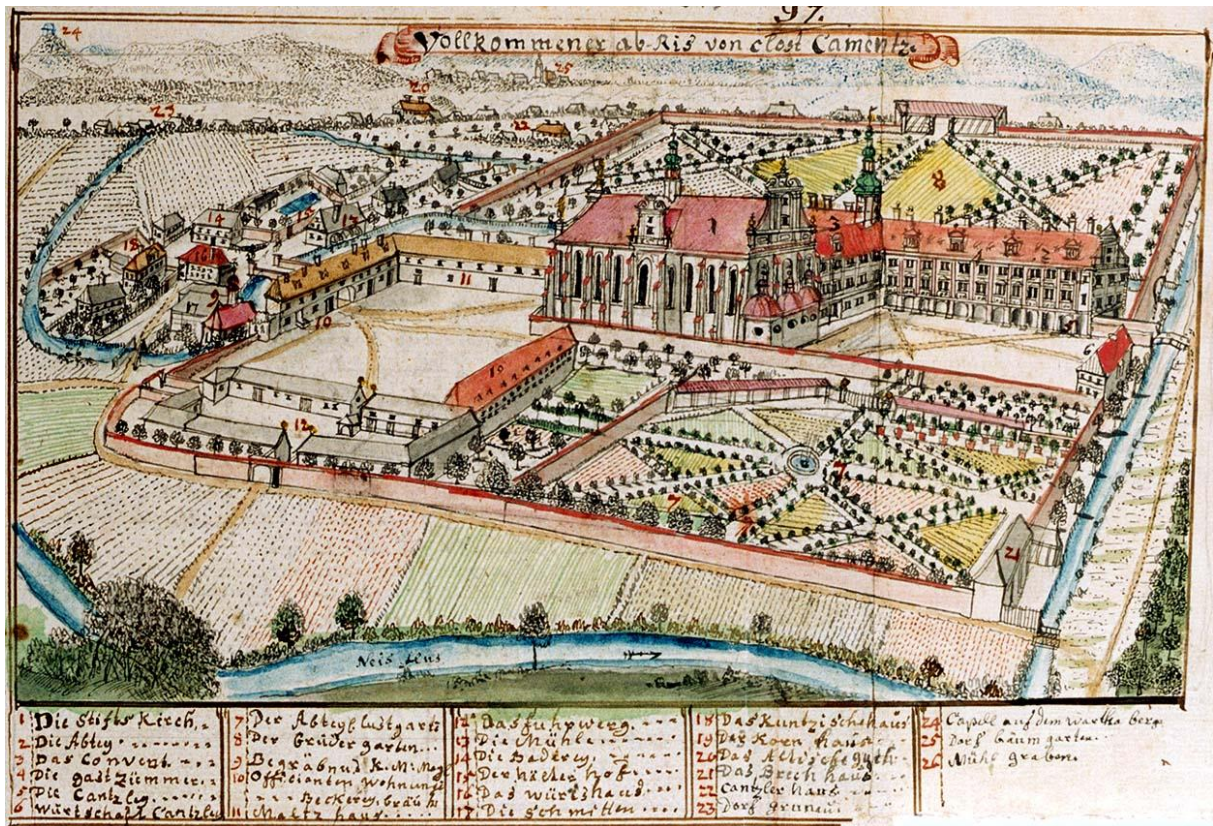 97.
Vollkommener ab-Ris von clost Camentz.
Neis flus
1 Die Stifts Kirch
2 Die Abtey
3 Das Convent
4 Die gastzümmer
5 Die Cantzley
6 Würtschaft Cantzley
7 Der Abtey lustgart
8 Der brüder garten
9 Begräbnus K. M.
10 Officianten Wohnung
Beckerey, bräuh
11 Maltz haus
12 Das fuhrwerg
13 Die Mühle
14 Die Baderey
15 Der hof
16 Das würtshaus
17 Die Schmitten
18 Das Kuntzische haus
19 Das Korn haus
20 Das
21 Das Brech haus
22 Cantzler haus
23 Dorf grunau
24 Capell auf dem wartha berg
25 Dorf baumgarten
26 Mühl graben